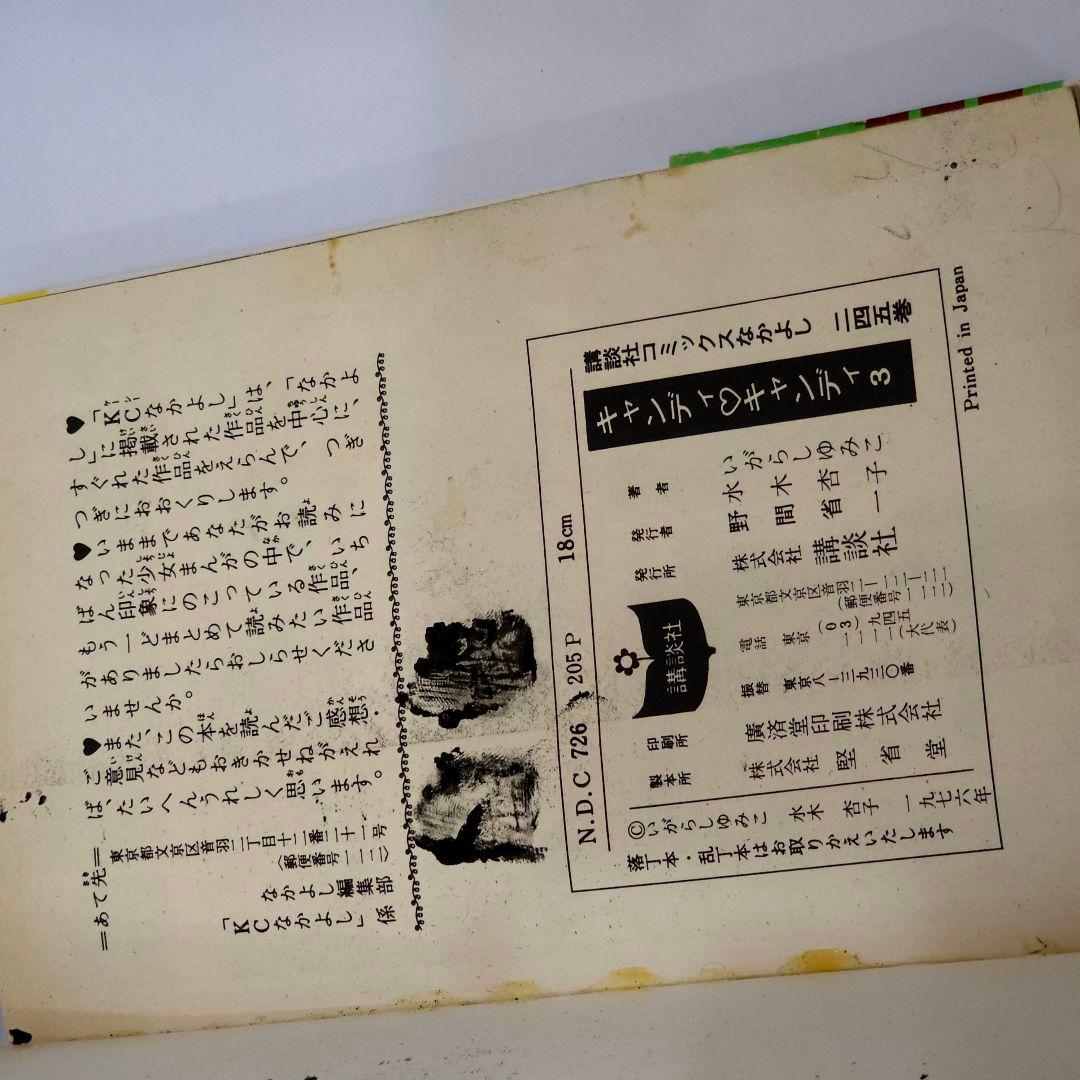 ♥「KCなかよし」は、「なかよ
し」に掲載された作品を中心に、
すぐれた作品をえらんで、つぎ
つぎにおおくりします。
♥いままであなたがお読みに
なった少女まんがの中で、いち
ばん印象にのこっている作品、
もう一どまとめて読みたい作品
がありましたらおしらせくださ
いませんか。
♥また、この本を読んだご感想・
ご意見などもおきかせねがえれ
ば、たいへんうれしく思います。
＝あて先＝
東京都文京区音羽二丁目十二番二十一号
（郵便番号一一二）
なかよし編集部
「KCなかよし」係
N.D.C 726 205P 18cm
講談社コミックスなかよし 二四五巻
キャンディ♡キャンディ 3
著者 いがらしゆみこ
水木杏子
発行者 野間省一
発行所 株式会社 講談社
東京都文京区音羽二―一二―二一
（郵便番号一一二）
電話 東京（〇三）九四五―一一一一（大代表）
振替 東京八―三九三〇番
講談社
印刷所 廣済堂印刷株式会社
製本所 株式会社 堅省堂
©いがらしゆみこ 水木杏子 一九七六年
落丁本・乱丁本はお取りかえいたします
Printed in Japan